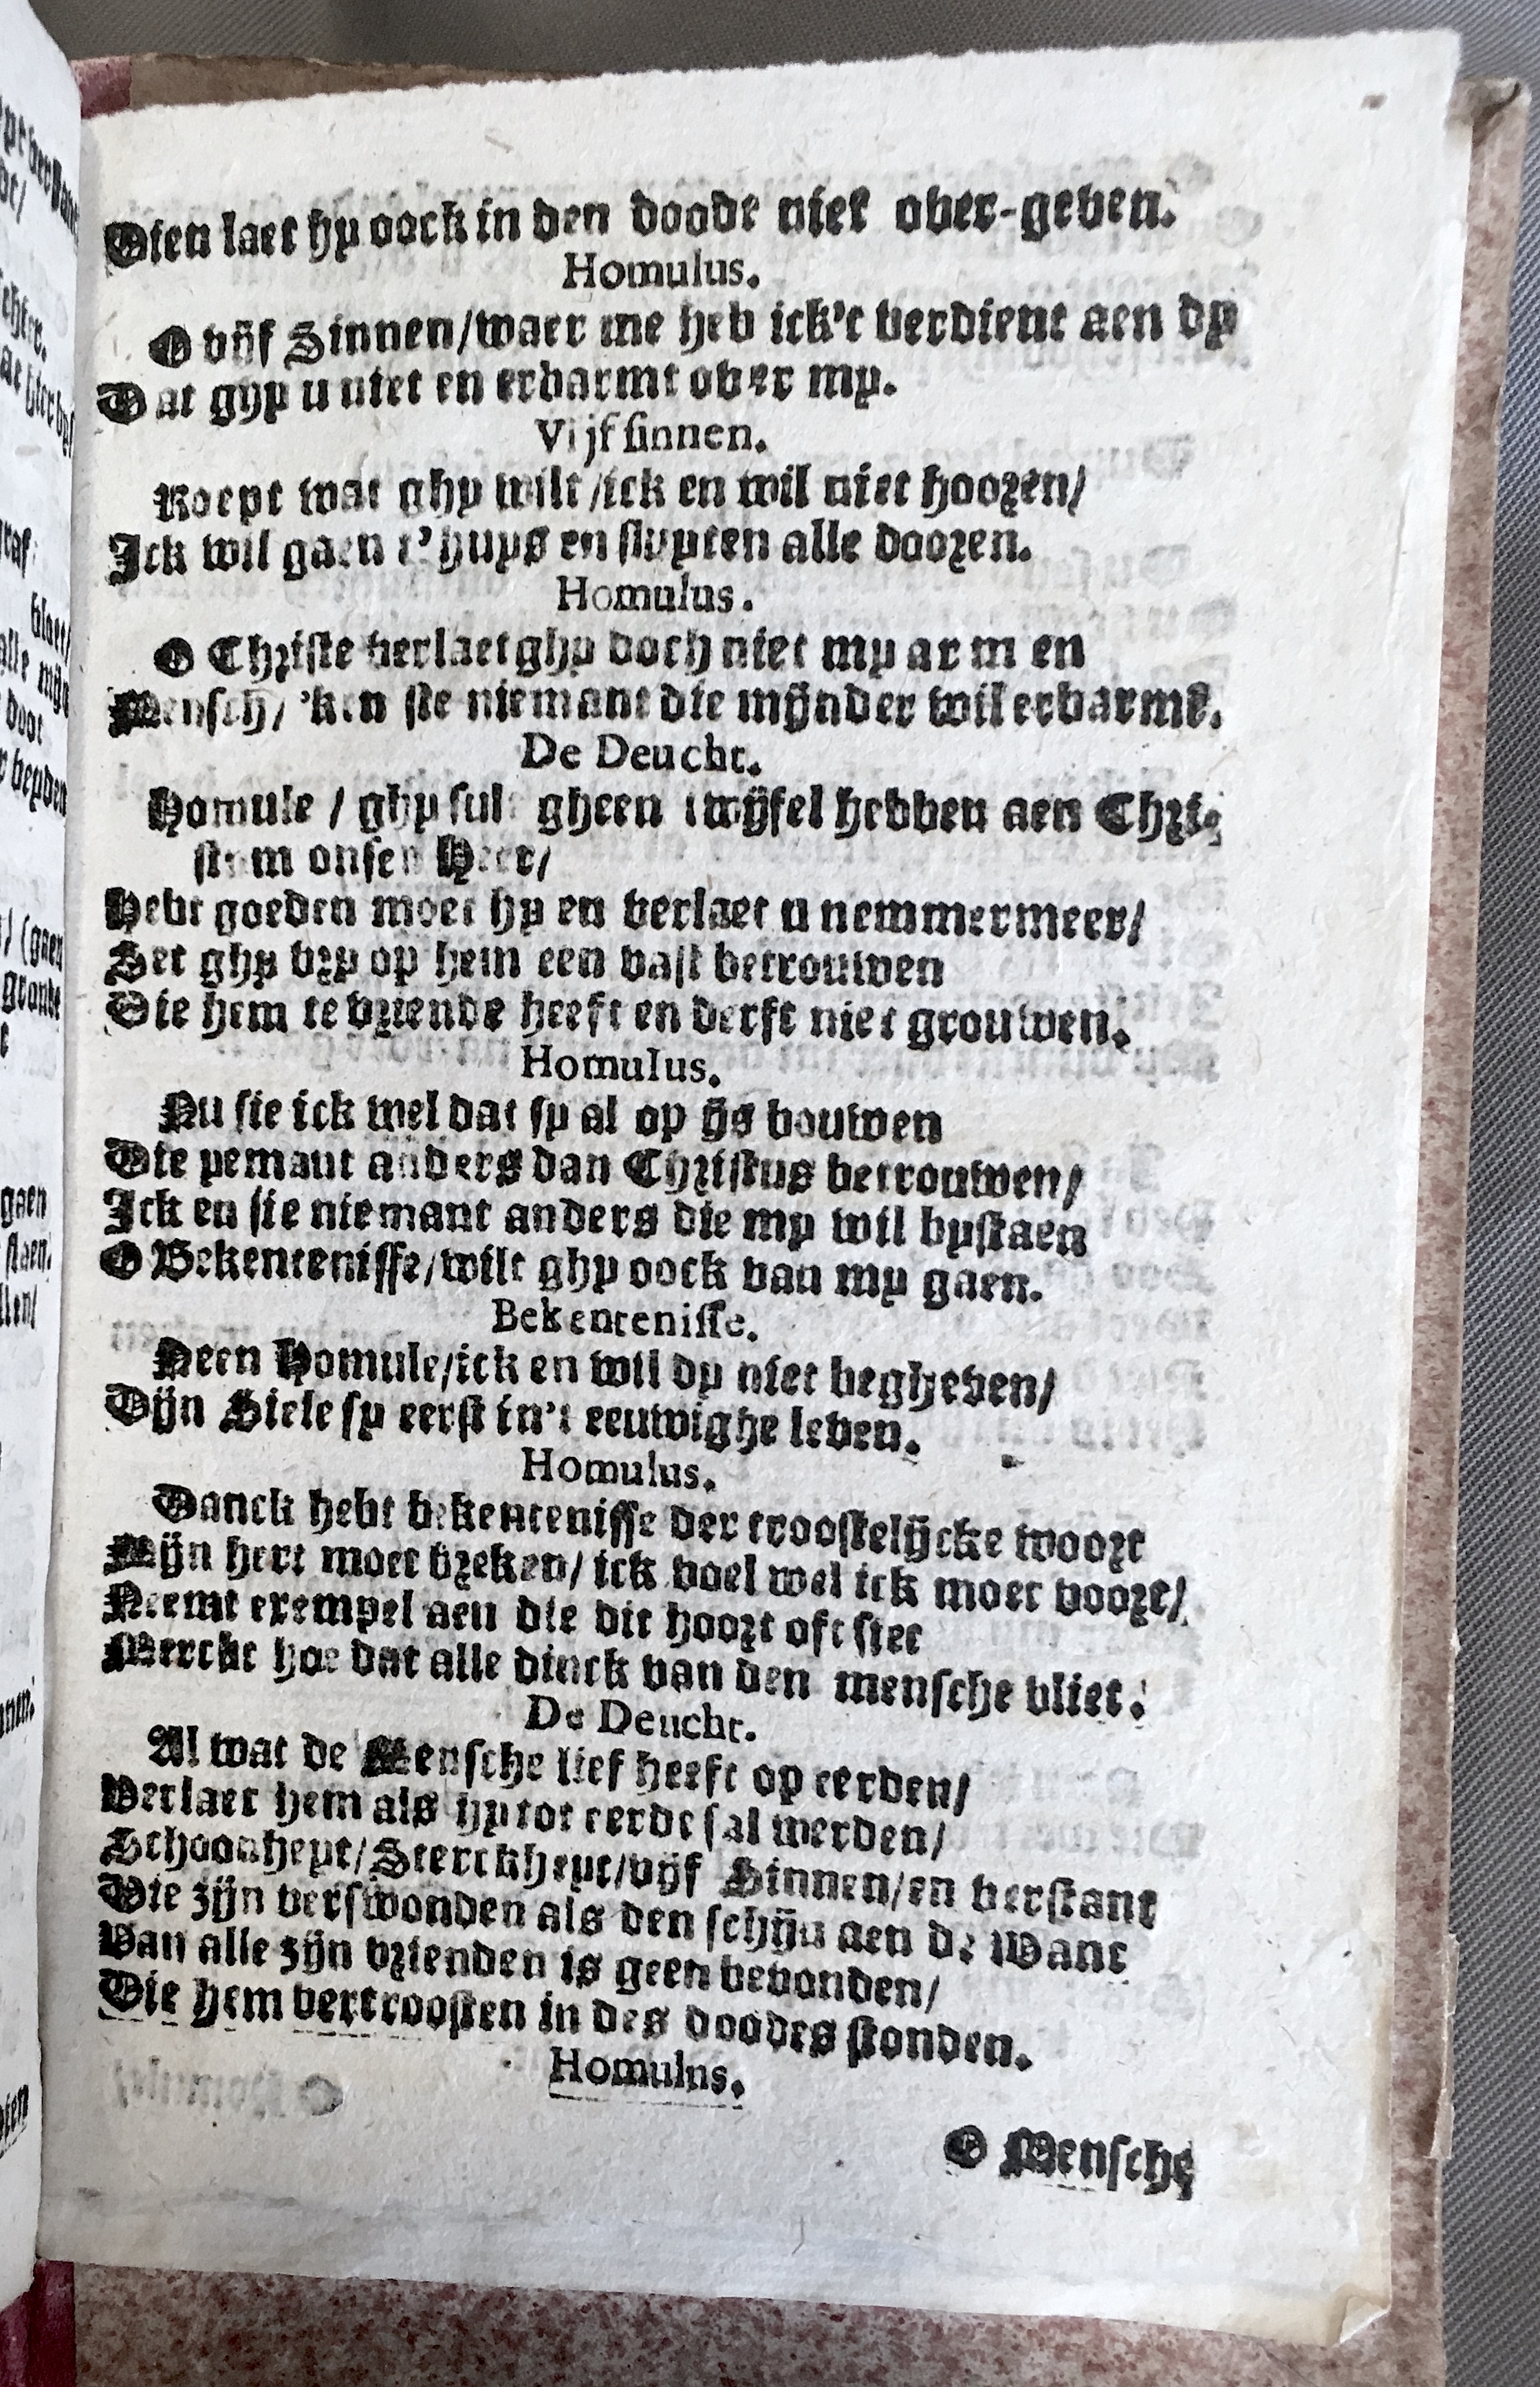 Dien laet hy oock in den doode niet over-geven.
Homulus.
O vijf Sinnen/waer me heb ick't verdient aen dy
Dat ghy u niet en erbarmt over my.
Vijf sinnen.
Roept wat ghy wilt/ick en wil niet hooren/
Ick wil gaen t'huys en sluyten alle dooren.
Homulus.
O Christe verlaet ghy doch niet my armen
Mensch/ 'ken sie niemant die mijnder wil erbarmē.
De Deucht.
Homule / ghy sult gheen twijfel hebben aen Chri-
stum onsen Heer/
Hebt goeden moet hy en verlaet u nemmermeer/
Set ghy vry op hem een vast betrouwen
Die hem te vriende heeft en derft niet grouwen.
Homulus.
Nu sie ick wel dat sy al op ijs bouwen
Die yemant anders dan Christus betrouwen/
Ick en sie niemant anders die my wil bystaen
O Bekentenisse/wilt ghy oock van my gaen.
Bekentenisse.
Neen Homule/ick en wil dy niet begheven/
Dijn Siele sy eerst in't eeuwighe leven.
Homulus.
Danck hebt bekentenisse der troostelijcke woort
Mijn hert moet breken/ ick voel wel ick moet voort/
Neemt exempel aen die dit hoort oft siet
Merckt hoe dat alle dinck van den mensche vliet.
De Deucht.
Al wat de Mensche lief heeft op eerden/
Verlaet hem als hy tot eerde sal werden/
Schoonheyt/Sterckheyt/vijf Sinnen/en verstant
Die zijn verswonden als den schijn aen de Want
Van alle zijn vrienden is geen bevonden/
Die hem vertroosten in des doodes stonden.
Homulus.
O Mensche